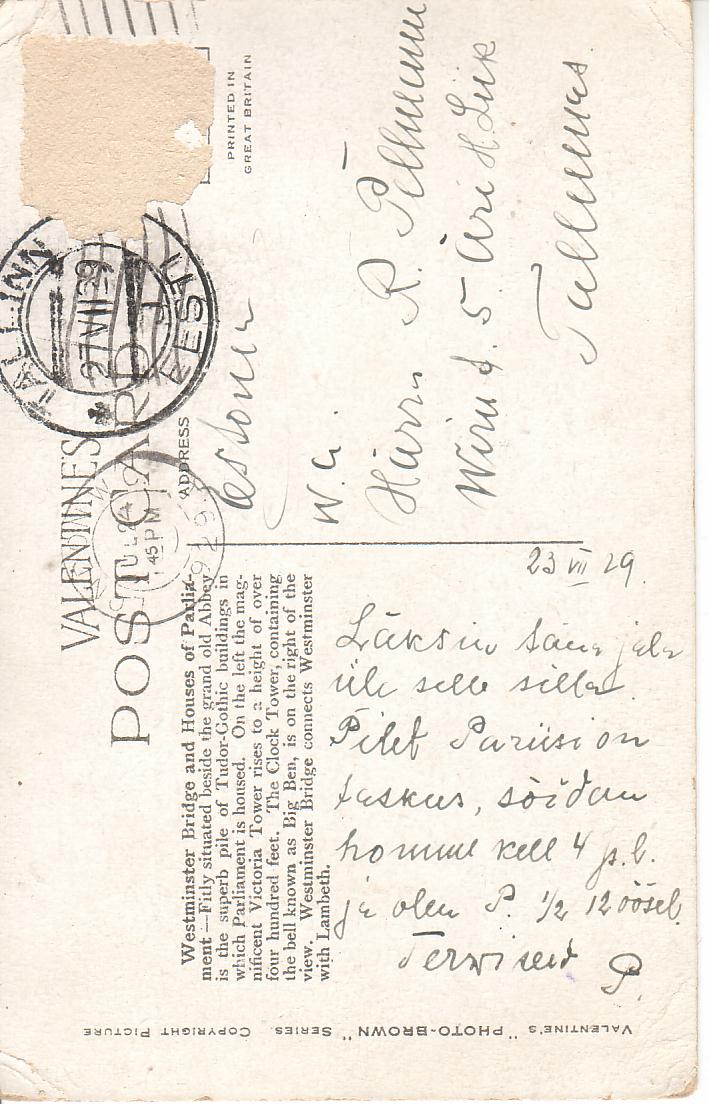 VALENTINES
POST CARD
ADDRESS
PRINTED IN
GREAT BRITAIN
TALLINN
27 VII 29
EESTI
45 PM
JUL 24
1929
Westminster Bridge and Houses of Parlia-
ment—Fitly situated beside the grand old Abbey
is the superb pile of Tudor-Gothic buildings in
which Parliament is housed. On the left the mag-
nificent Victoria Tower rises to a height of over
four hundred feet. The Clock Tower, containing
the bell known as Big Ben, is on the right of the
view. Westminster Bridge connects Westminster
with Lambeth.
Estonia
Härra R. Tellmann
Wiru t. 5. Äri H. Liik
Tallinnas.
23 VII 29.
Läksin täna jala
üle selle silla.
Pilet Pariisi on
taskus, sõidan
homme kell 4 p.l.
ja olen P. 1/2 12 öösel.
Terwised P.
VALENTINE'S "PHOTO-BROWN" SERIES. COPYRIGHT PICTURE